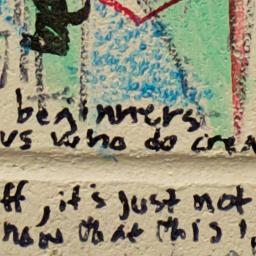 beginners
us who do crea
ff, it's just not
now that this i